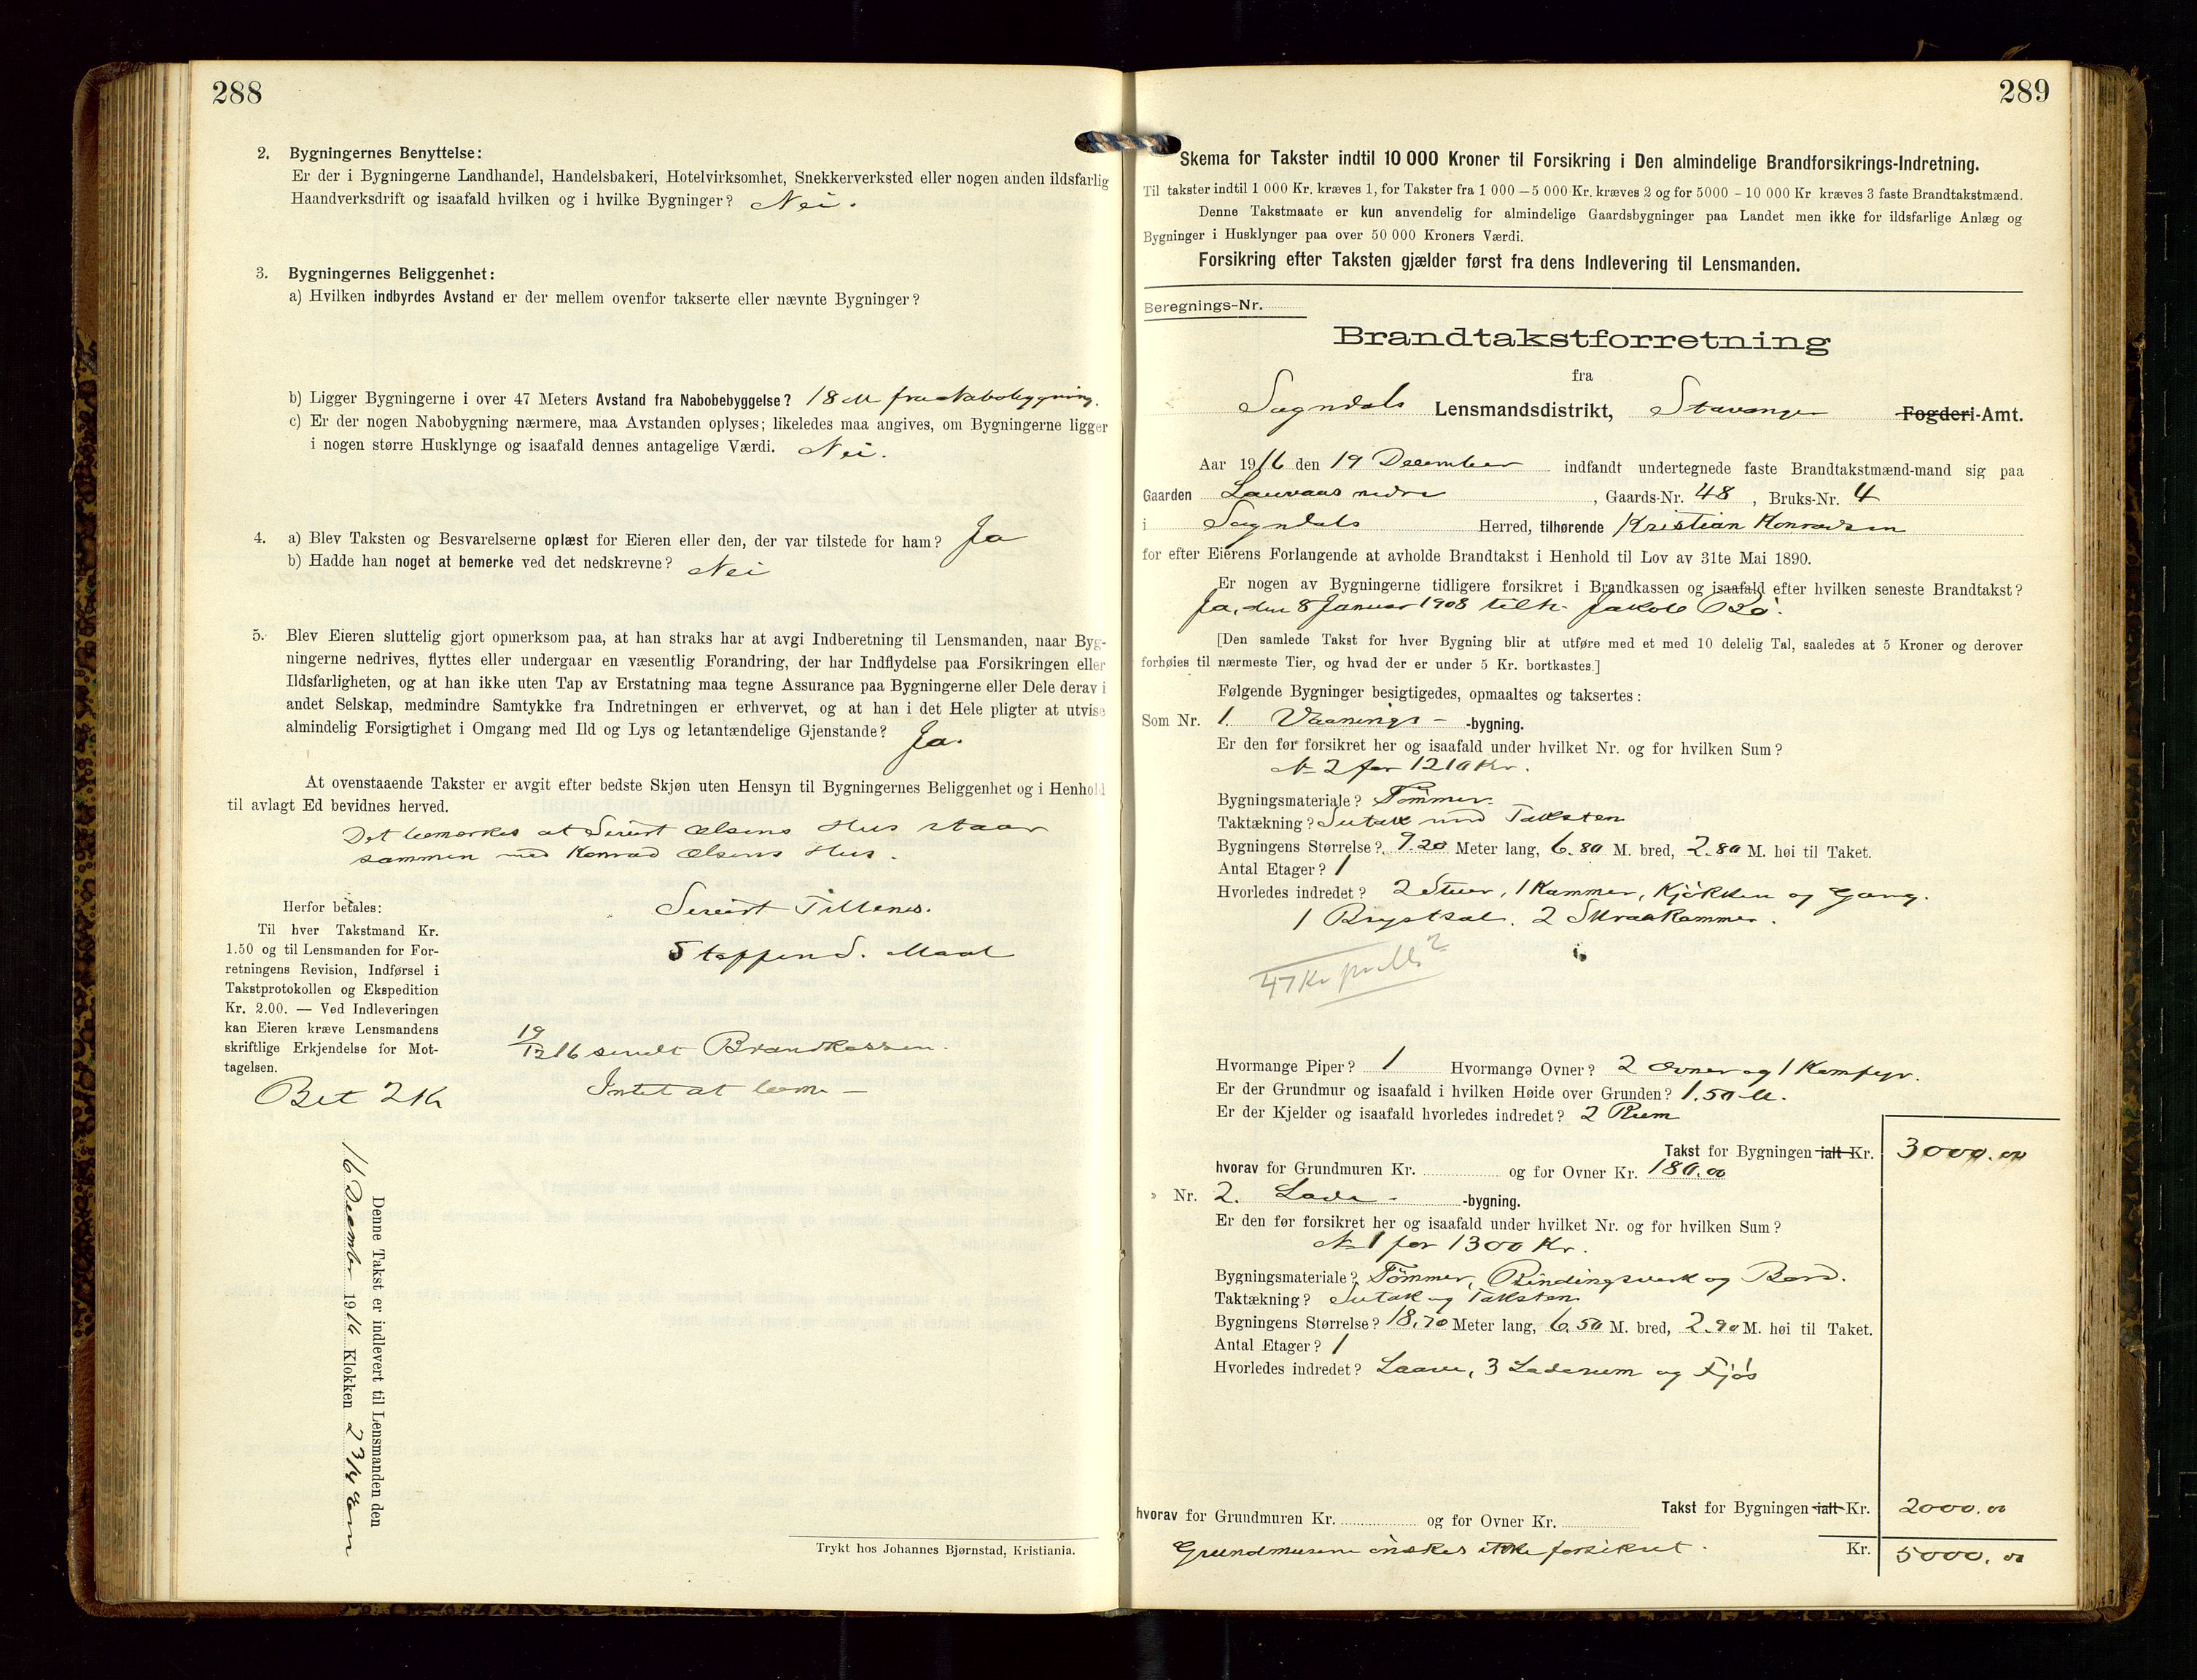 288
2. Bygningernes Benyttelse:
Er der i Bygningerne Landhandel, Handelsbakeri, Hotelvirksomhet, Snekkerverksted eller nogen anden ildsfarlig
Haandverksdrift og isaafald hvilken og i hvilke Bygninger? Nei.
3. Bygningernes Beliggenhet:
a) Hvilken indbyrdes Avstand er der mellem ovenfor takserte eller nævnte Bygninger?
b) Ligger Bygningerne i over 47 Meters Avstand fra Nabobebyggelse? 18 M fra Nabobygning.
c) Er der nogen Nabobygning nærmere, maa Avstanden oplyses; likeledes maa angives, om Bygningerne ligger
i nogen større Husklynge og isaafald dennes antagelige Værdi. Nei.
4. a) Blev Taksten og Besvarelserne oplæst for Eieren eller den, der var tilstede for ham? Ja
b) Hadde han noget at bemerke ved det nedskrevne? Nei
5. Blev Eieren sluttelig gjort opmerksom paa, at han straks har at avgi Indberetning til Lensmanden, naar Byg-
ningerne nedrives, flyttes eller undergaar en væsentlig Forandring, der har Indflydelse paa Forsikringen eller
Ildsfarligheten, og at han ikke uten Tap av Erstatning maa tegne Assurance paa Bygningerne eller Dele derav i
andet Selskap, medmindre Samtykke fra Indretningen er erhvervet, og at han i det Hele pligter at utvise
almindelig Forsigtighet i Omgang med Ild og Lys og letantændelige Gjenstande? Ja.
At ovenstaaende Takster er avgit efter bedste Skjøn uten Hensyn til Bygningernes Beliggenhet og i Henhold
til avlagt Ed bevidnes herved.
Det bemerkes at Sivert Olsens Hus staar
sammen med Konrad Olsens Hus.
Herfor betales:
Til hver Takstmand Kr.
1.50 og til Lensmanden for For-
retningens Revision, Indførsel i
Takstprotokollen og Ekspedition
Kr. 2.00. — Ved Indleveringen
kan Eieren kræve Lensmandens
skriftlige Erkjendelse for Mot-
tagelsen.
Sivert Tillenes.
Steffen S. Maal
19/12 16 sendt Brandkassen.
Bet 2 Kr
Intet at bem —
Denne Takst er indlevert til Lensmanden den
16 December 1916 Klokken 2 3/4 em
Trykt hos Johannes Bjørnstad, Kristiania.
289
Skema for Takster indtil 10 000 Kroner til Forsikring i Den almindelige Brandforsikrings-Indretning.
Til takster indtil 1 000 Kr. kræves 1, for Takster fra 1 000 — 5 000 Kr. kræves 2 og for 5000 - 10 000 Kr kræves 3 faste Brandtakstmænd.
Denne Takstmaate er kun anvendelig for almindelige Gaardsbygninger paa Landet men ikke for ildsfarlige Anlæg og
Bygninger i Husklynger paa over 50 000 Kroners Værdi.
Forsikring efter Taksten gjælder først fra dens Indlevering til Lensmanden.
Beregnings-Nr.
Brandtakstforretning
fra
Sogndals Lensmandsdistrikt, Stavanger Fogderi-Amt.
Aar 1916 den 19 December indfandt undertegnede faste Brandtakstmænd-mand sig paa
Gaarden Lauvaas nedre, Gaards-Nr. 48, Bruks-Nr. 4
i Sogndals Herred, tilhørende Kristian Konradsen
for efter Eierens Forlangende at avholde Brandtakst i Henhold til Lov av 31te Mai 1890.
Er nogen av Bygningerne tidligere forsikret i Brandkassen og isaafald efter hvilken seneste Brandtakst?
Ja, den 8 Januar 1908 tilh. Jakob Bø.
[Den samlede Takst for hver Bygning blir at utføre med et med 10 delelig Tal, saaledes at 5 Kroner og derover
forhøies til nærmeste Tier, og hvad der er under 5 Kr. bortkastes.]
Følgende Bygninger besigtigedes, opmaaltes og taksertes:
Som Nr. 1. Vaanings- -bygning.
Er den før forsikret her og isaafald under hvilket Nr. og for hvilken Sum?
N 2 for 1210 Kr.
Bygningsmateriale? Tømmer.
Taktækning? Sutak med Taksten
Bygningens Størrelse? 9.20 Meter lang, 6.80 M. bred, 2.80 M. høi til Taket.
Antal Etager? 1
Hvorledes indredet? 2 Stuer, 1 Kammer, Kjøkken og Gang.
1 Brystsal. 2 Skraakammer.
47 Kr pr M²
Hvormange Piper? 1 Hvormange Ovner? 2 Ovner og 1 Komfyr.
Er der Grundmur og isaafald i hvilken Høide over Grunden? 1.50 M.
Er der Kjelder og isaafald hvorledes indredet? 2 Rum
Takst for Bygningen ialt Kr. 3000.00
hvorav for Grundmuren Kr. og for Ovner Kr. 180.00
» Nr. 2. Lade- -bygning.
Er den før forsikret her og isaafald under hvilket Nr. og for hvilken Sum?
N 1 for 1300 Kr.
Bygningsmateriale? Tømmer, Bindingsverk og Bord.
Taktækning? Sutak og Taksten
Bygningens Størrelse? 18.70 Meter lang, 6.50 M. bred, 2.90 M. høi til Taket.
Antal Etager? 1
Hvorledes indredet? Laave, 3 Laderum og Fjøs
Takst for Bygningen ialt Kr. 2000.00
hvorav for Grundmuren Kr. og for Ovner Kr.
Grundmurene ønskes ikke forsikret. Kr. 5000.00